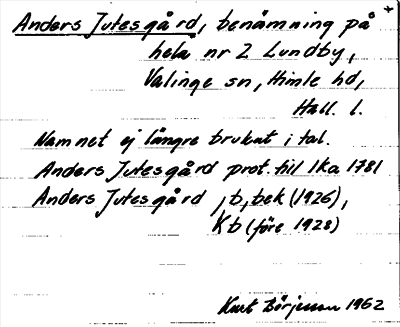 Anders Jutesgård, benämning på
hela nr 2 Lundby,
Valinge sn, Himle hd,
Hall. l.
Namnet ej längre brukat i tal.
Anders Jutesgård prot. till lka 1781
Anders Jutesgård jb, bek (1926),
Kb (före 1928)
Kurt Börjesson 1962